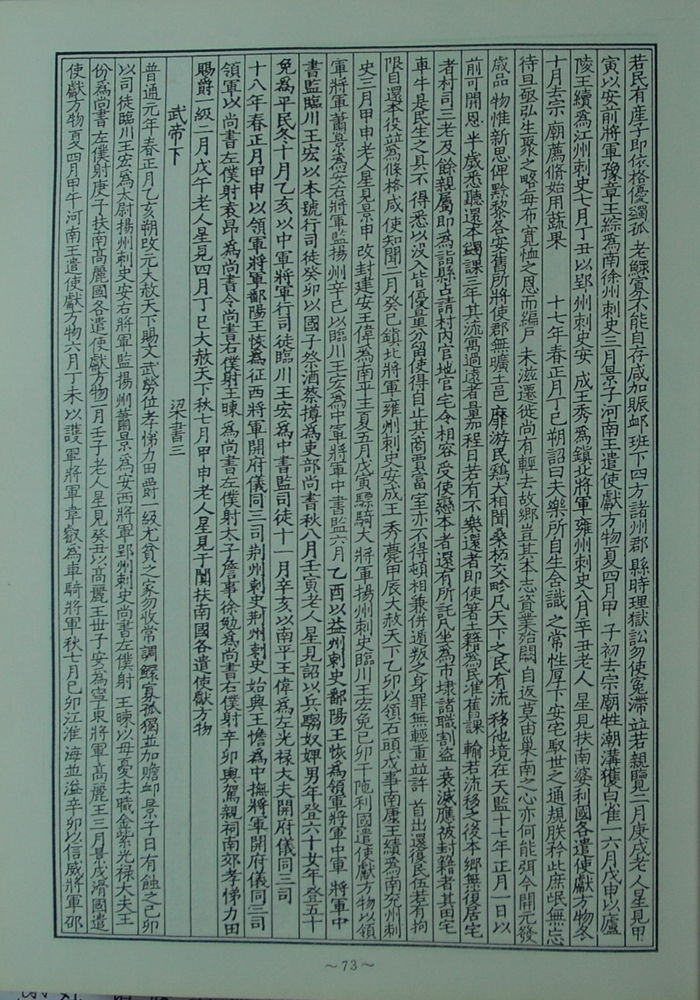 若民有產子即依格優蠲孤老鰥寡不能自存咸加賑卹班下四方諸州郡縣時理獄訟勿使冤滯並若親覽二月庚戌老人星見甲
寅以安前將軍豫章王綜為南徐州刺史三月景子河南王遣使獻方物夏四月甲子初去宗廟牲潮溝獲白雀一六月戊申以廬
陵王續為江州刺史七月丁丑以郢州刺史安成王秀為鎮北將軍雍州刺史八月辛丑老人星見扶南婆利國各遣使獻方物冬
十月去宗廟薦脩始用蔬果 十七年春正月丁巳朔詔曰夫樂所自生含識之常性厚下安宅馭世之通規朕矜此庶氓無忘
待旦亟弘生聚之略每布寬恤之恩而編戶未滋遷徙尚有輕去故鄉豈其本志資業殆闕自返莫由巢南之心亦何能弭今開元發
歲品物惟新思俾黔黎各安舊所將使郡無曠土邑靡游民鷄犬相聞桑柘交畛凡天下之民有流移他境在天監十七年正月一日以
前可開恩半歲悉聽還本蠲課三年其流寓過遠者量加程日若有不樂還者即使著土籍為民准舊課輸若流移之後本鄉無復居宅
者村司三老及餘親屬即為詣縣占請村內官地官宅令相容受使戀本者還有所託凡坐為市埭諸職割盜衰減應被封籍者其田宅
車牛是民生之具不得悉以沒入皆優量分留使得自止其商賈富室亦不得頓相兼併遁叛之身罪無輕重並許首出還復民伍若有拘
限自還本役並為條格咸使知聞二月癸巳鎮北將軍雍州刺史安成王秀薨甲辰大赦天下乙卯以領石頭戍事南康王績為南兗州刺
史三月甲申老人星見景申改封建安王偉為南平王夏五月戊寅驃騎大將軍揚州刺史臨川王宏免己卯干陁利國遣使獻方物以領
軍將軍蕭景為安右將軍監揚州辛巳以臨川王宏為中軍將軍中書監六月乙酉以益州刺史鄱陽王恢為領軍將軍中軍將軍中
書監臨川王宏以本號行司徒癸卯以國子祭酒蔡撙為吏部尚書秋八月壬寅老人星見詔以兵騶奴婢男年登六十女年登五十
免為平民冬十月乙亥以中軍將軍行司徒臨川王宏為中書監司徒十一月辛亥以南平王偉為左光祿大夫開府儀同三司
十八年春正月甲申以領軍將軍鄱陽王恢為征西將軍開府儀同三司荊州刺史荊州刺史始興王憺為中撫將軍開府儀同三司
領軍以尚書左僕射袁昂為尚書令尚書右僕射王暕為尚書左僕射太子詹事徐勉為尚書右僕射辛卯輿駕親祠南郊孝悌力田
賜爵一級二月戊午老人星見四月丁巳大赦天下秋七月甲申老人星見于闐扶南國各遣使獻方物
武帝下 梁書三
普通元年春正月乙亥朔改元大赦天下賜文武勞位孝悌力田爵一級尤貧之家勿收常調鰥寡孤獨並加贍卹景子日有蝕之己卯
以司徒臨川王宏為太尉揚州刺史安右將軍監揚州蕭景為安西將軍郢州刺史尚書左僕射王暕以母憂去職金紫光祿大夫王
份為尚書左僕射庚子扶南高麗國各遣使獻方物二月壬子老人星見癸丑以高麗王世子安為寧東將軍高麗王三月景戌滑國遣
使獻方物夏四月甲午河南王遣使獻方物六月丁未以護軍將軍韋叡為車騎將軍秋七月己卯江淮海並溢辛卯以信威將軍邵
~73~